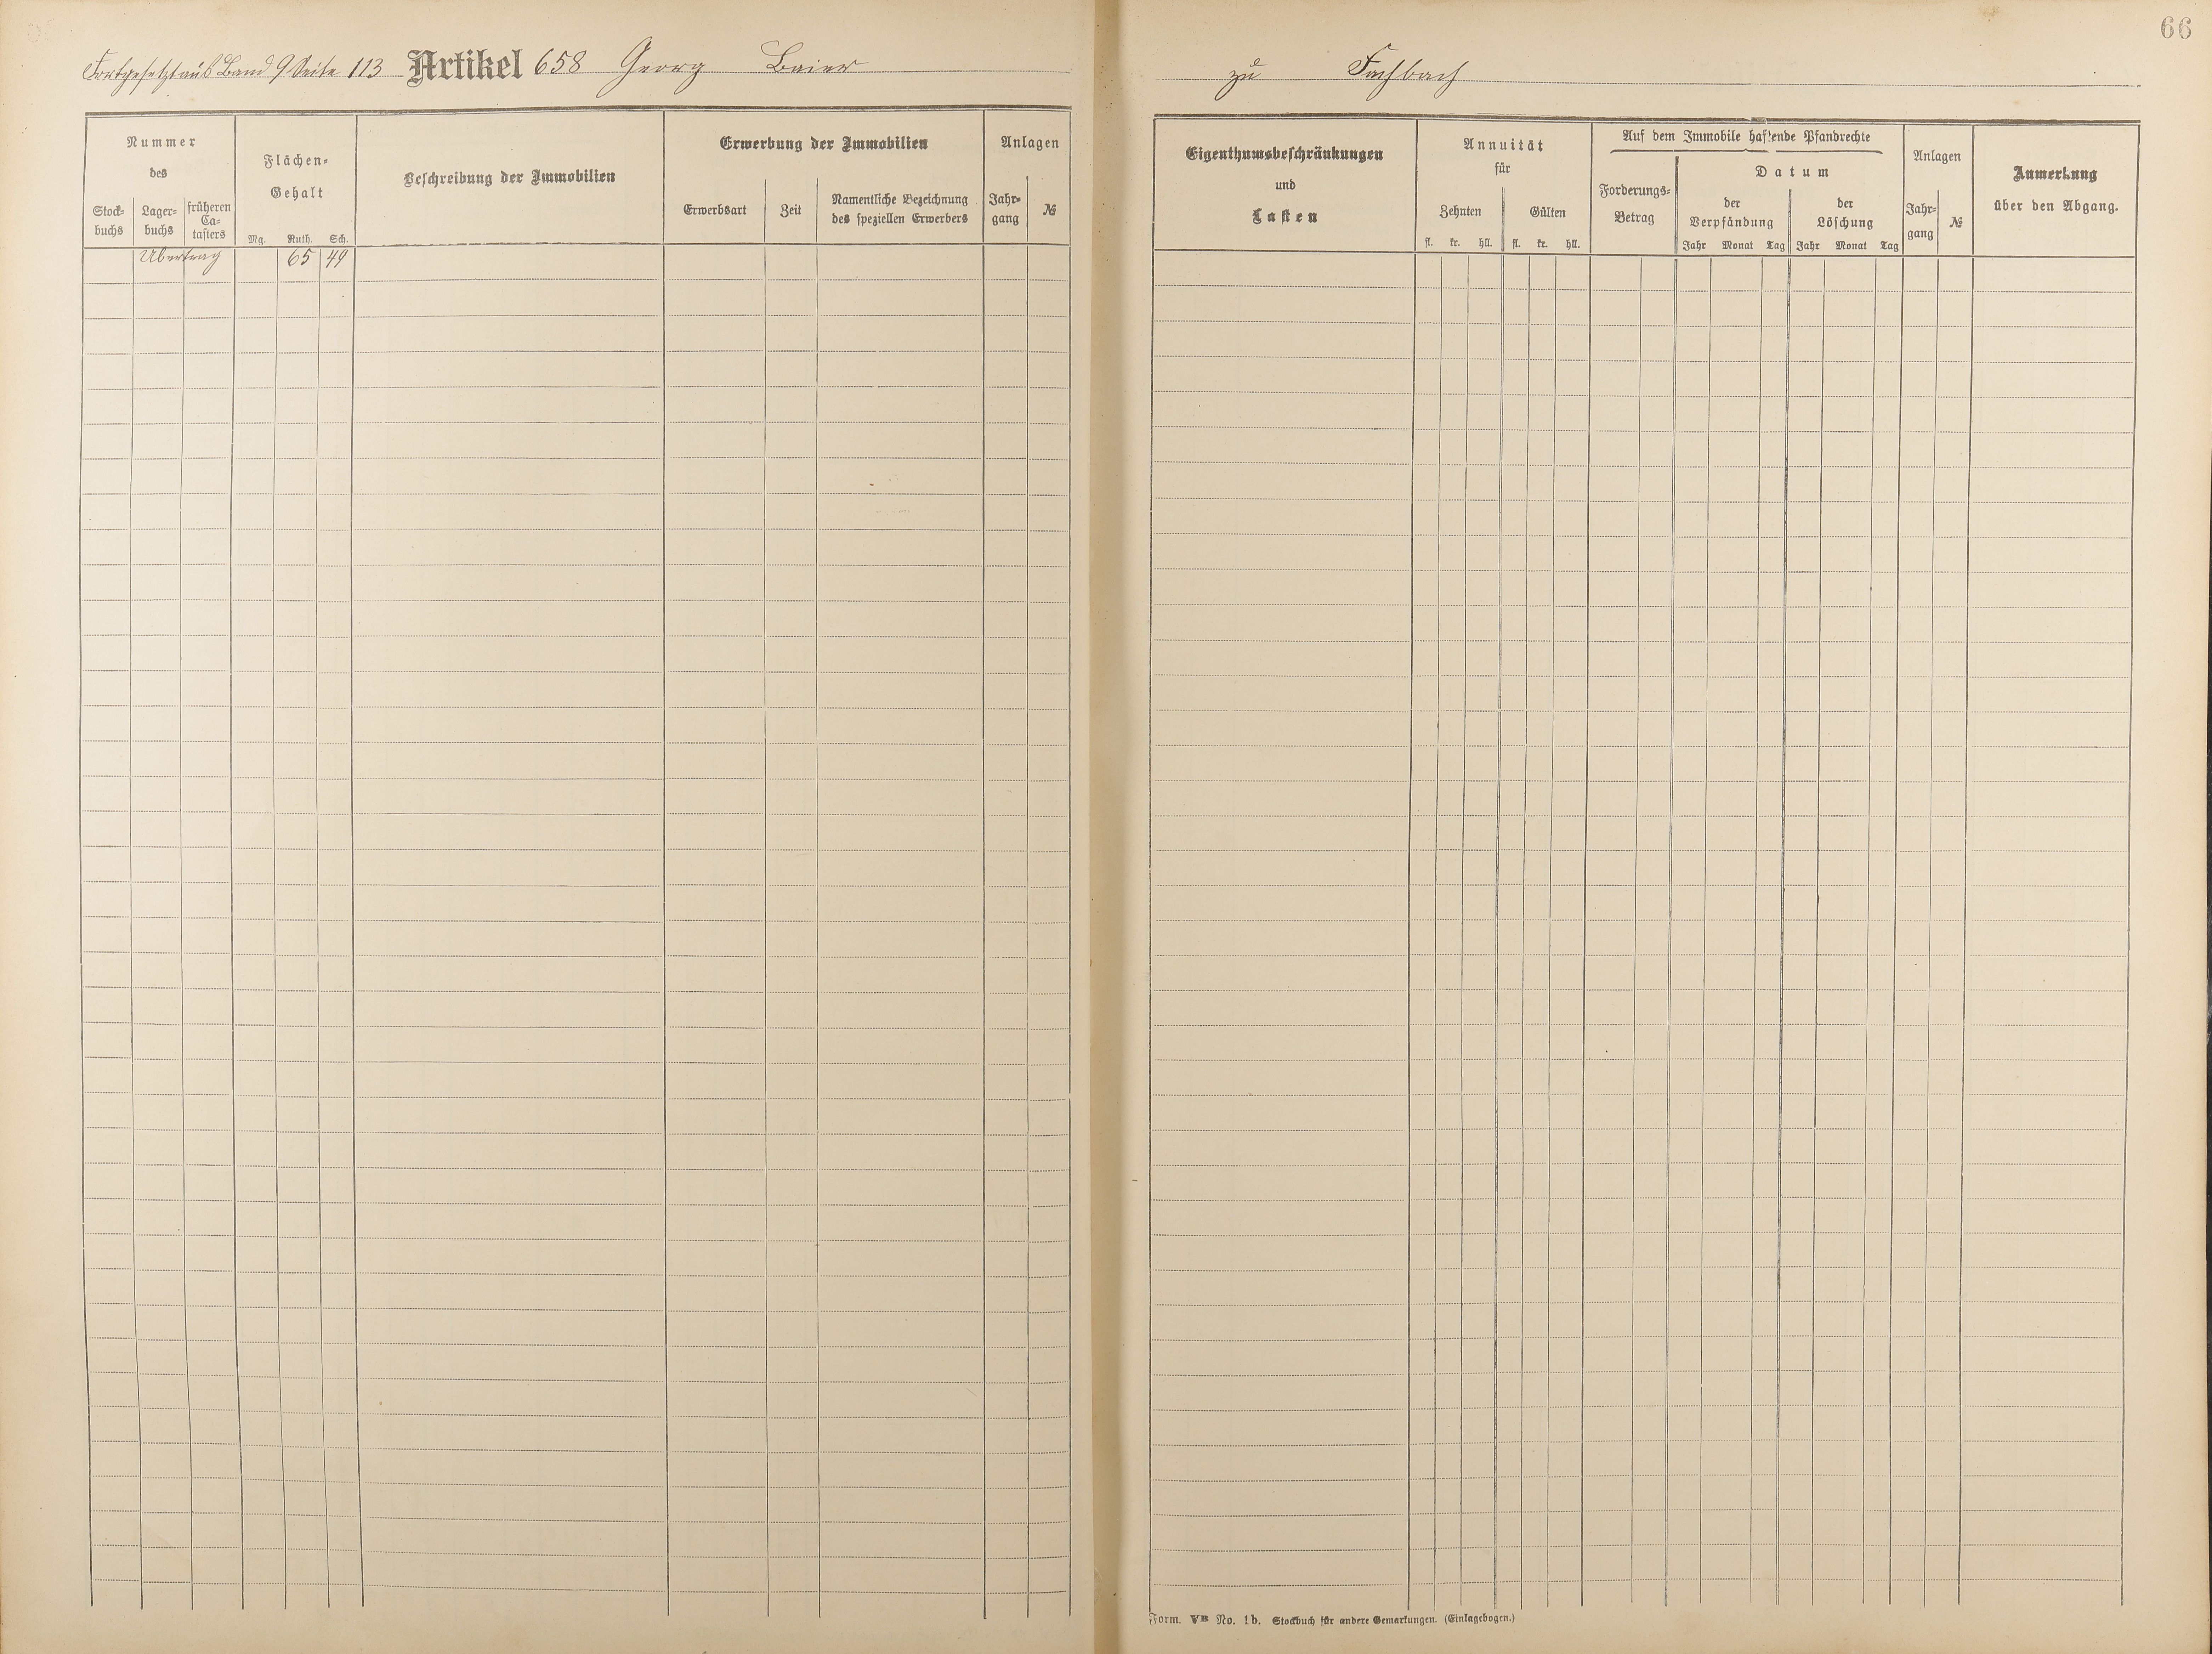 66
Fortgesetzt aus Band 9 Seite 113 Artikel 658 Georg Baier
zu Fachbach
Nummer
des
Stock-
buchs
Lager-
buchs
früheren
Ca-
tasters
Flächen-
Gehalt
Mg. Ruth. Sch.
Beschreibung der Immobilien
Erwerbung der Immobilien
Erwerbsart
Zeit
Namentliche Bezeichnung
des speziellen Erwerbers
Anlagen
Jahr-
gang
№
Übertrag 65 49
Eigenthumsbeschränkungen
und
Lasten
Annuität
für
Zehnten
Gülten
fl. kr. hll. fl. kr. hll.
Auf dem Immobile haftende Pfandrechte
Forderungs-
Betrag
Datum
der
Verpfändung
der
Löschung
Jahr Monat Tag Jahr Monat Tag
Anlagen
Jahr-
gang
№
Anmerkung
über den Abgang.
Form. VB No. 1b. Stockbuch für andere Gemarkungen. (Einlagebogen.)